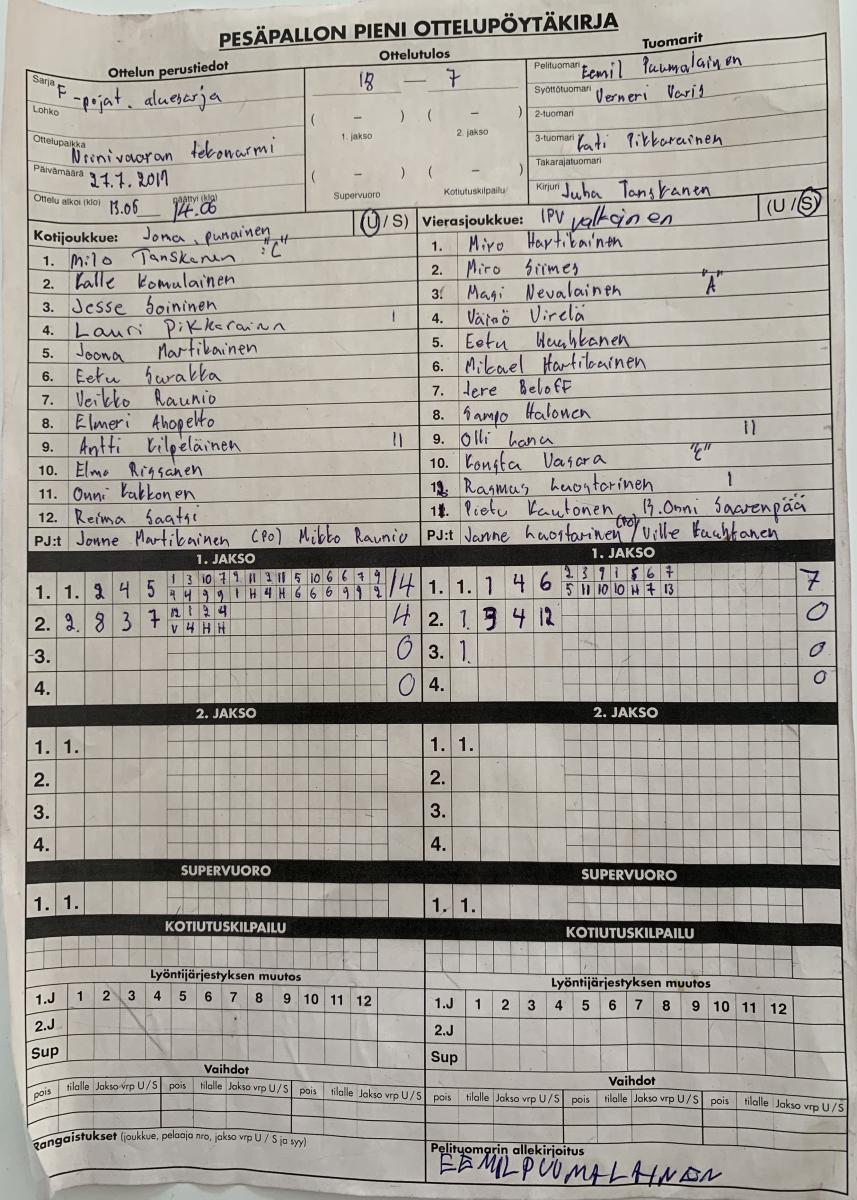 PESÄPALLON PIENI OTTELUPÖYTÄKIRJA
Ottelun perustiedot
Sarja F -pojat. aluesarja
Lohko
Ottelupaikka Niinivaaran tekonurmi
Päivämäärä 27.7.2019
Ottelu alkoi (klo) 13.06 päättyi (klo) 14.06
Ottelutulos
18 — 7
( – ) ( – )
1. jakso 2. jakso
( – ) ( – )
Supervuoro Kotiutuskilpailu
Tuomarit
Pelituomari Eemil Puumalainen
Syöttötuomari Verneri Varis
2-tuomari
3-tuomari Kati Pikkarainen
Takarajatuomari
Kirjuri Juha Tanskanen
Kotijoukkue: Joma, punainen (U / S)
1. Milo Tanskanen "C"
2. Kalle Komulainen
3. Jesse Soininen
4. Lauri Pikkarainen I
5. Joona Martikainen
6. Eetu Surakka
7. Veikko Raunio
8. Elmeri Ahopelto
9. Antti Kilpeläinen II
10. Elmo Rissanen
11. Onni Kakkonen
12. Reima Saatsi
PJ:t Jonne Martikainen (PO) Mikko Raunio
Vierasjoukkue: IPV valkoinen (U / S)
1. Miro Hartikainen
2. Miro Siimes
3. Masi Nevalainen "A"
4. Väinö Virelä
5. Eetu Kuuhkanen
6. Mikael Hartikainen
7. Jere Beloff
8. Sampo Halonen
9. Olli Lana II
10. Konsta Vasara "C"
12. Rasmus Luostarinen I
11. Pietu Kautonen 13. Onni Saarenpää
PJ:t Janne Luostarinen (PO) / Ville Kuuhkanen
1. JAKSO
1. 1. 2 4 5 1 3 10 7 2 11 3 11 5 10 6 6 7 9 14
4 4 9 9 1 H 4 H 6 6 6 9 9 2
2. 2. 8 3 7 12 1 2 4 4
V 4 H H
3. 0
4. 0
1. JAKSO
1. 1. 1 4 6 2 3 9 1 5 6 7 7
5 11 10 10 H 7 13
2. 1. 3 4 12 0
3. 1. 0
4. 0
2. JAKSO
1. 1.
2.
3.
4.
2. JAKSO
1. 1.
2.
3.
4.
SUPERVUORO
1. 1.
SUPERVUORO
1. 1.
KOTIUTUSKILPAILU
KOTIUTUSKILPAILU
Lyöntijärjestyksen muutos
1.J 1 2 3 4 5 6 7 8 9 10 11 12
2.J
Sup
Lyöntijärjestyksen muutos
1.J 1 2 3 4 5 6 7 8 9 10 11 12
2.J
Sup
Vaihdot
pois tilalle Jakso vrp U / S pois tilalle Jakso vrp U / S pois tilalle Jakso vrp U / S
Vaihdot
pois tilalle Jakso vrp U / S pois tilalle Jakso vrp U / S pois tilalle Jakso vrp U / S
Rangaistukset (joukkue, pelaaja nro, jakso vrp U / S ja syy)
Pelituomarin allekirjoitus
EEMIL PUUMALAINEN